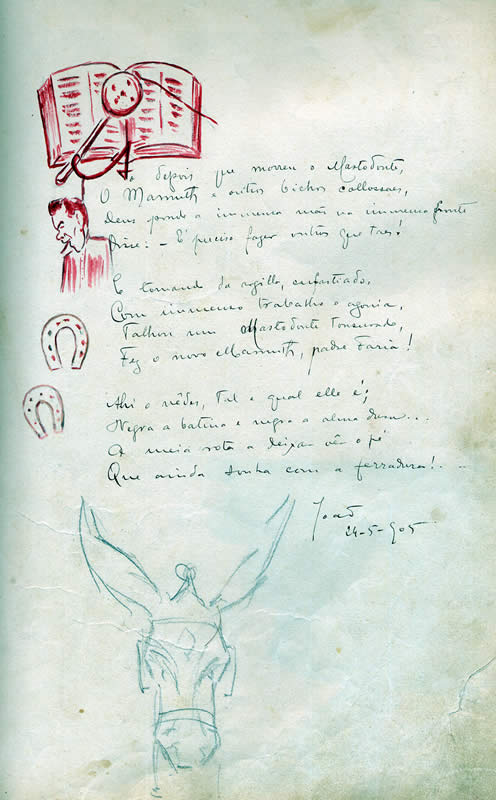 A depois que morreu o Mastodonte,
O Mammuth e outros bichos collossaes,
Deus pondo a immensa mão na immensa fronte
Disse: - É preciso fazer outros que taes!
E tomando da argilla, enfastiado,
Com immenso trabalho e agonia,
Talhou um Mastodonte tonsurado,
Fez o novo Mammuth, padre Faria!
Ahi o vêdes, tal e qual elle é;
Negra a batina e negra a alma
A meia rota a deixar vêr o pé
Que ainda sonha com a ferradura!...
João
24-5-905